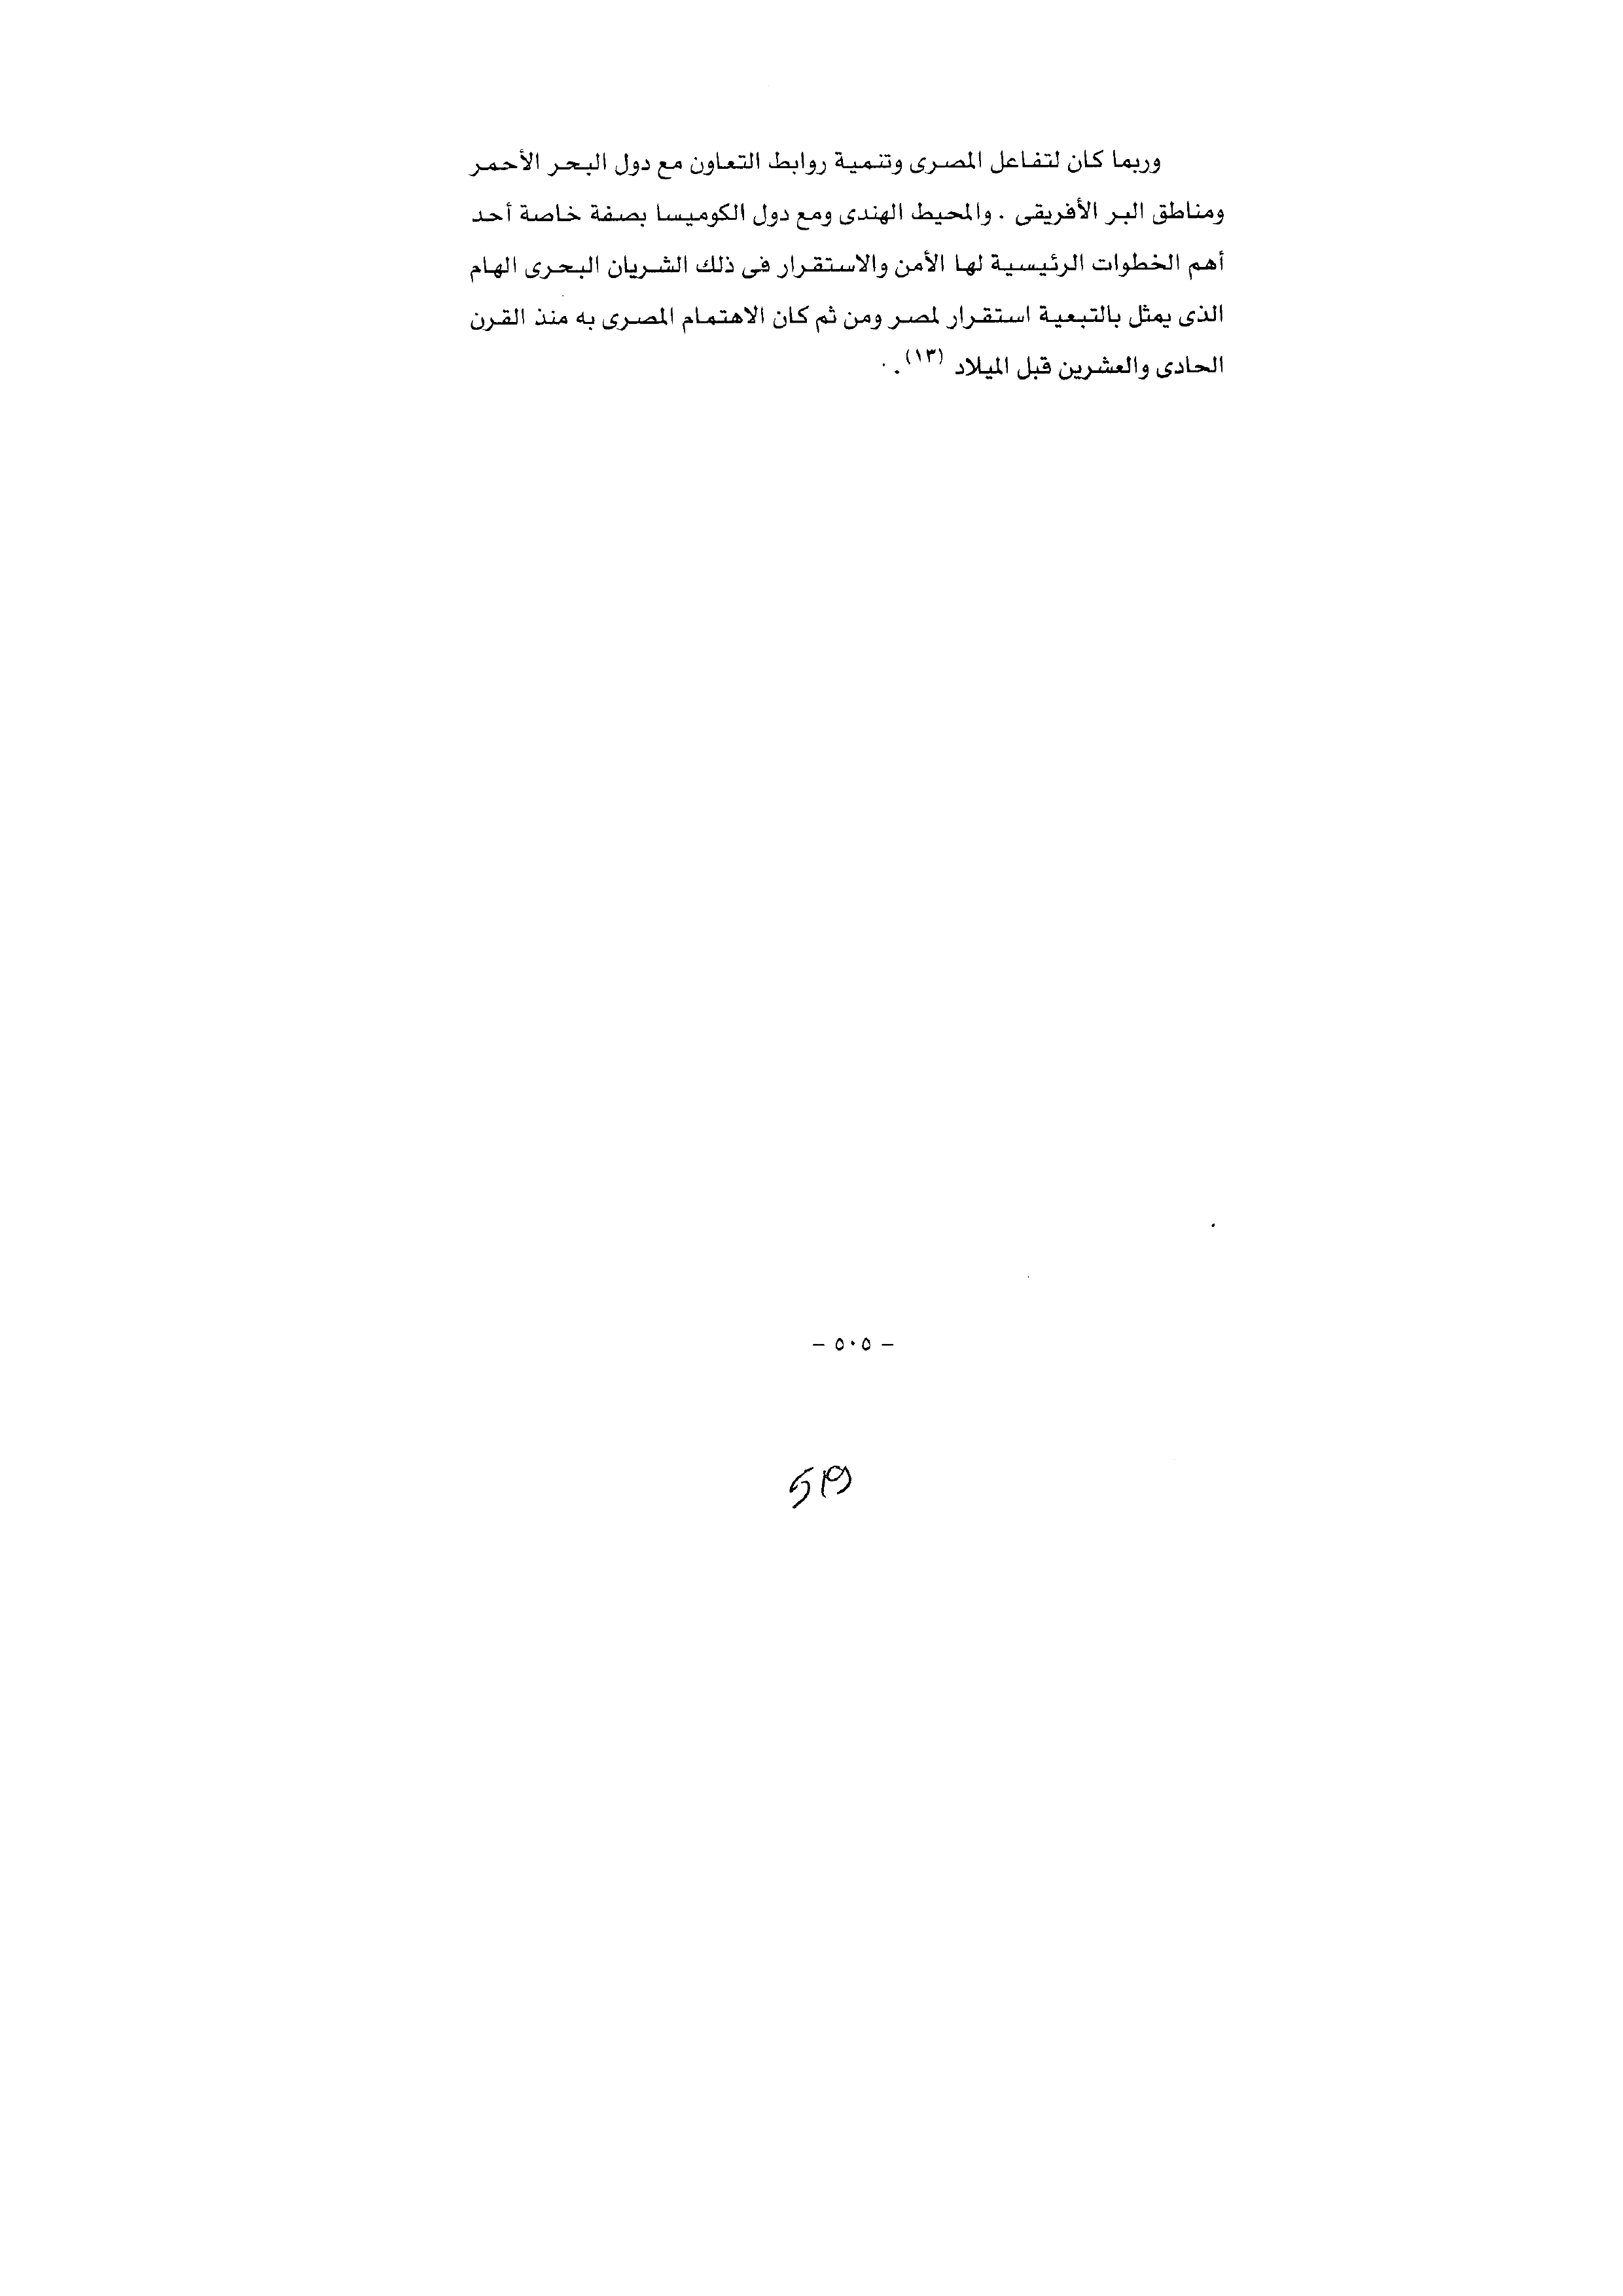 وربما كان لتفاعل المصرى وتنمية روابط التعاون مع دول البحر الأحمر
ومناطق البر الأفريقى . والمحيط الهندى ومع دول الكوميسا بصفة خاصة أحد
أهم الخطوات الرئيسية لها الأمن والاستقرار فى ذلك الشريان البحرى الهام
الذى يمثل بالتبعية استقرار لمصر ومن ثم كان الاهتمام المصرى به منذ القرن
الحادى والعشرين قبل الميلاد (١٣).
- ٥٠٥ -